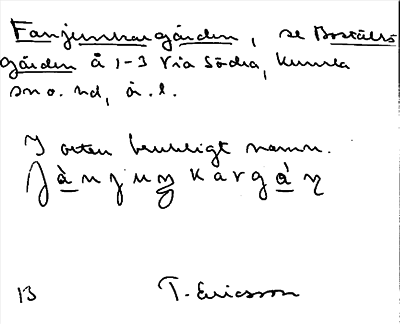 Fanjunkargården, se Boställs
gården å 1-3 Via Södra, Kumla
sn o. hd, ö. l.
I orten brukligt namn.
T. Ericsson